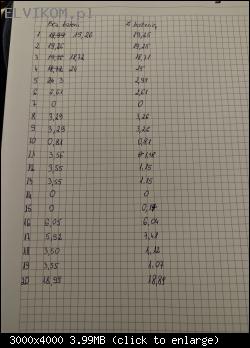 ELVIKOM.pl
Bez baterii Z baterią
1 18,99 19,26 19,25
2 19,26 19,25
3 18,72 18,71
4 18,72 24
5 24,3 2,91
6 2,61 2,61
7 0 0
8 3,29 3,26
9 3,29 3,22
10 0,81 0,81
11 3,56
12 3,55 1,15
13 3,55 1,15
14 0 0
15 0
16 6,05 6,04
17 5,92 7,48
18 3,50
19 3,55 1,07
20 18,99 18,89
3000x4000 3.99MB (click to enlarge)